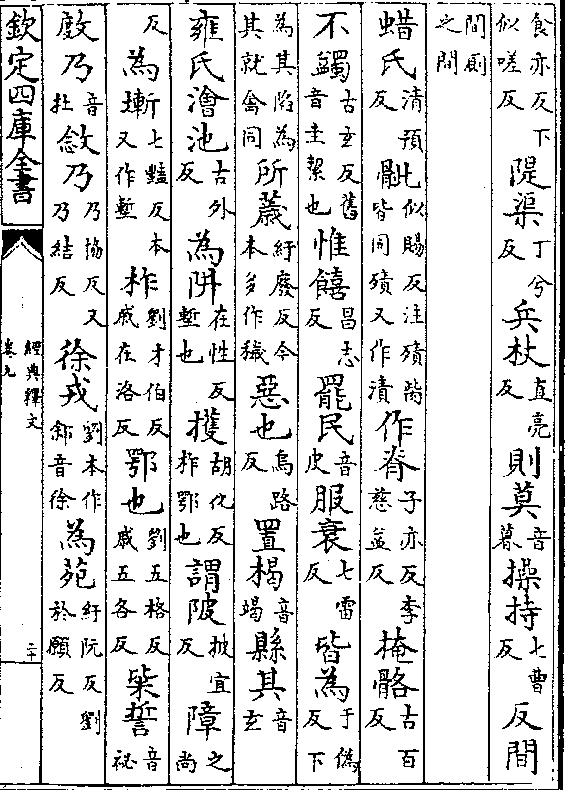 食亦反下似嗟反隄渠丁兮反兵杖直亮反則莫音暮操持七曹反反間
間厠之間
蜡氏清預反骴似賜反注殨骴皆同殨又作漬作脊子亦反李慈益反掩骼古百反
不蠲古玄反舊音圭絜也惟饎昌志反罷民音皮服衰七雷反皆為于偽反下
為其陷為其就禽同所薉紆廢反今本多作穢惡也烏路反置楬音竭縣其音玄
雍氏澮池古外反為阱在性反塹也擭胡化反柞鄂也謂陂披宜反障之尚
反為塹七豔反本又作塹柞劉才伯反戚在洛反鄂也劉五格反戚五各反柴誓音祕
乃音杜敜乃乃協反又乃結反徐戎劉本作䣄音徐為苑紆阮反劉於願反
欽定四庫全書
經典釋文
卷九
二十